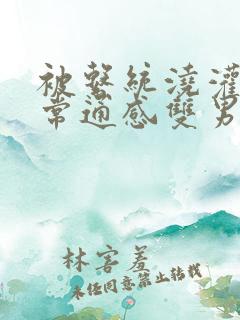 被系統澆灌
常通感雙男
林害羞
未經同意禁止轉載